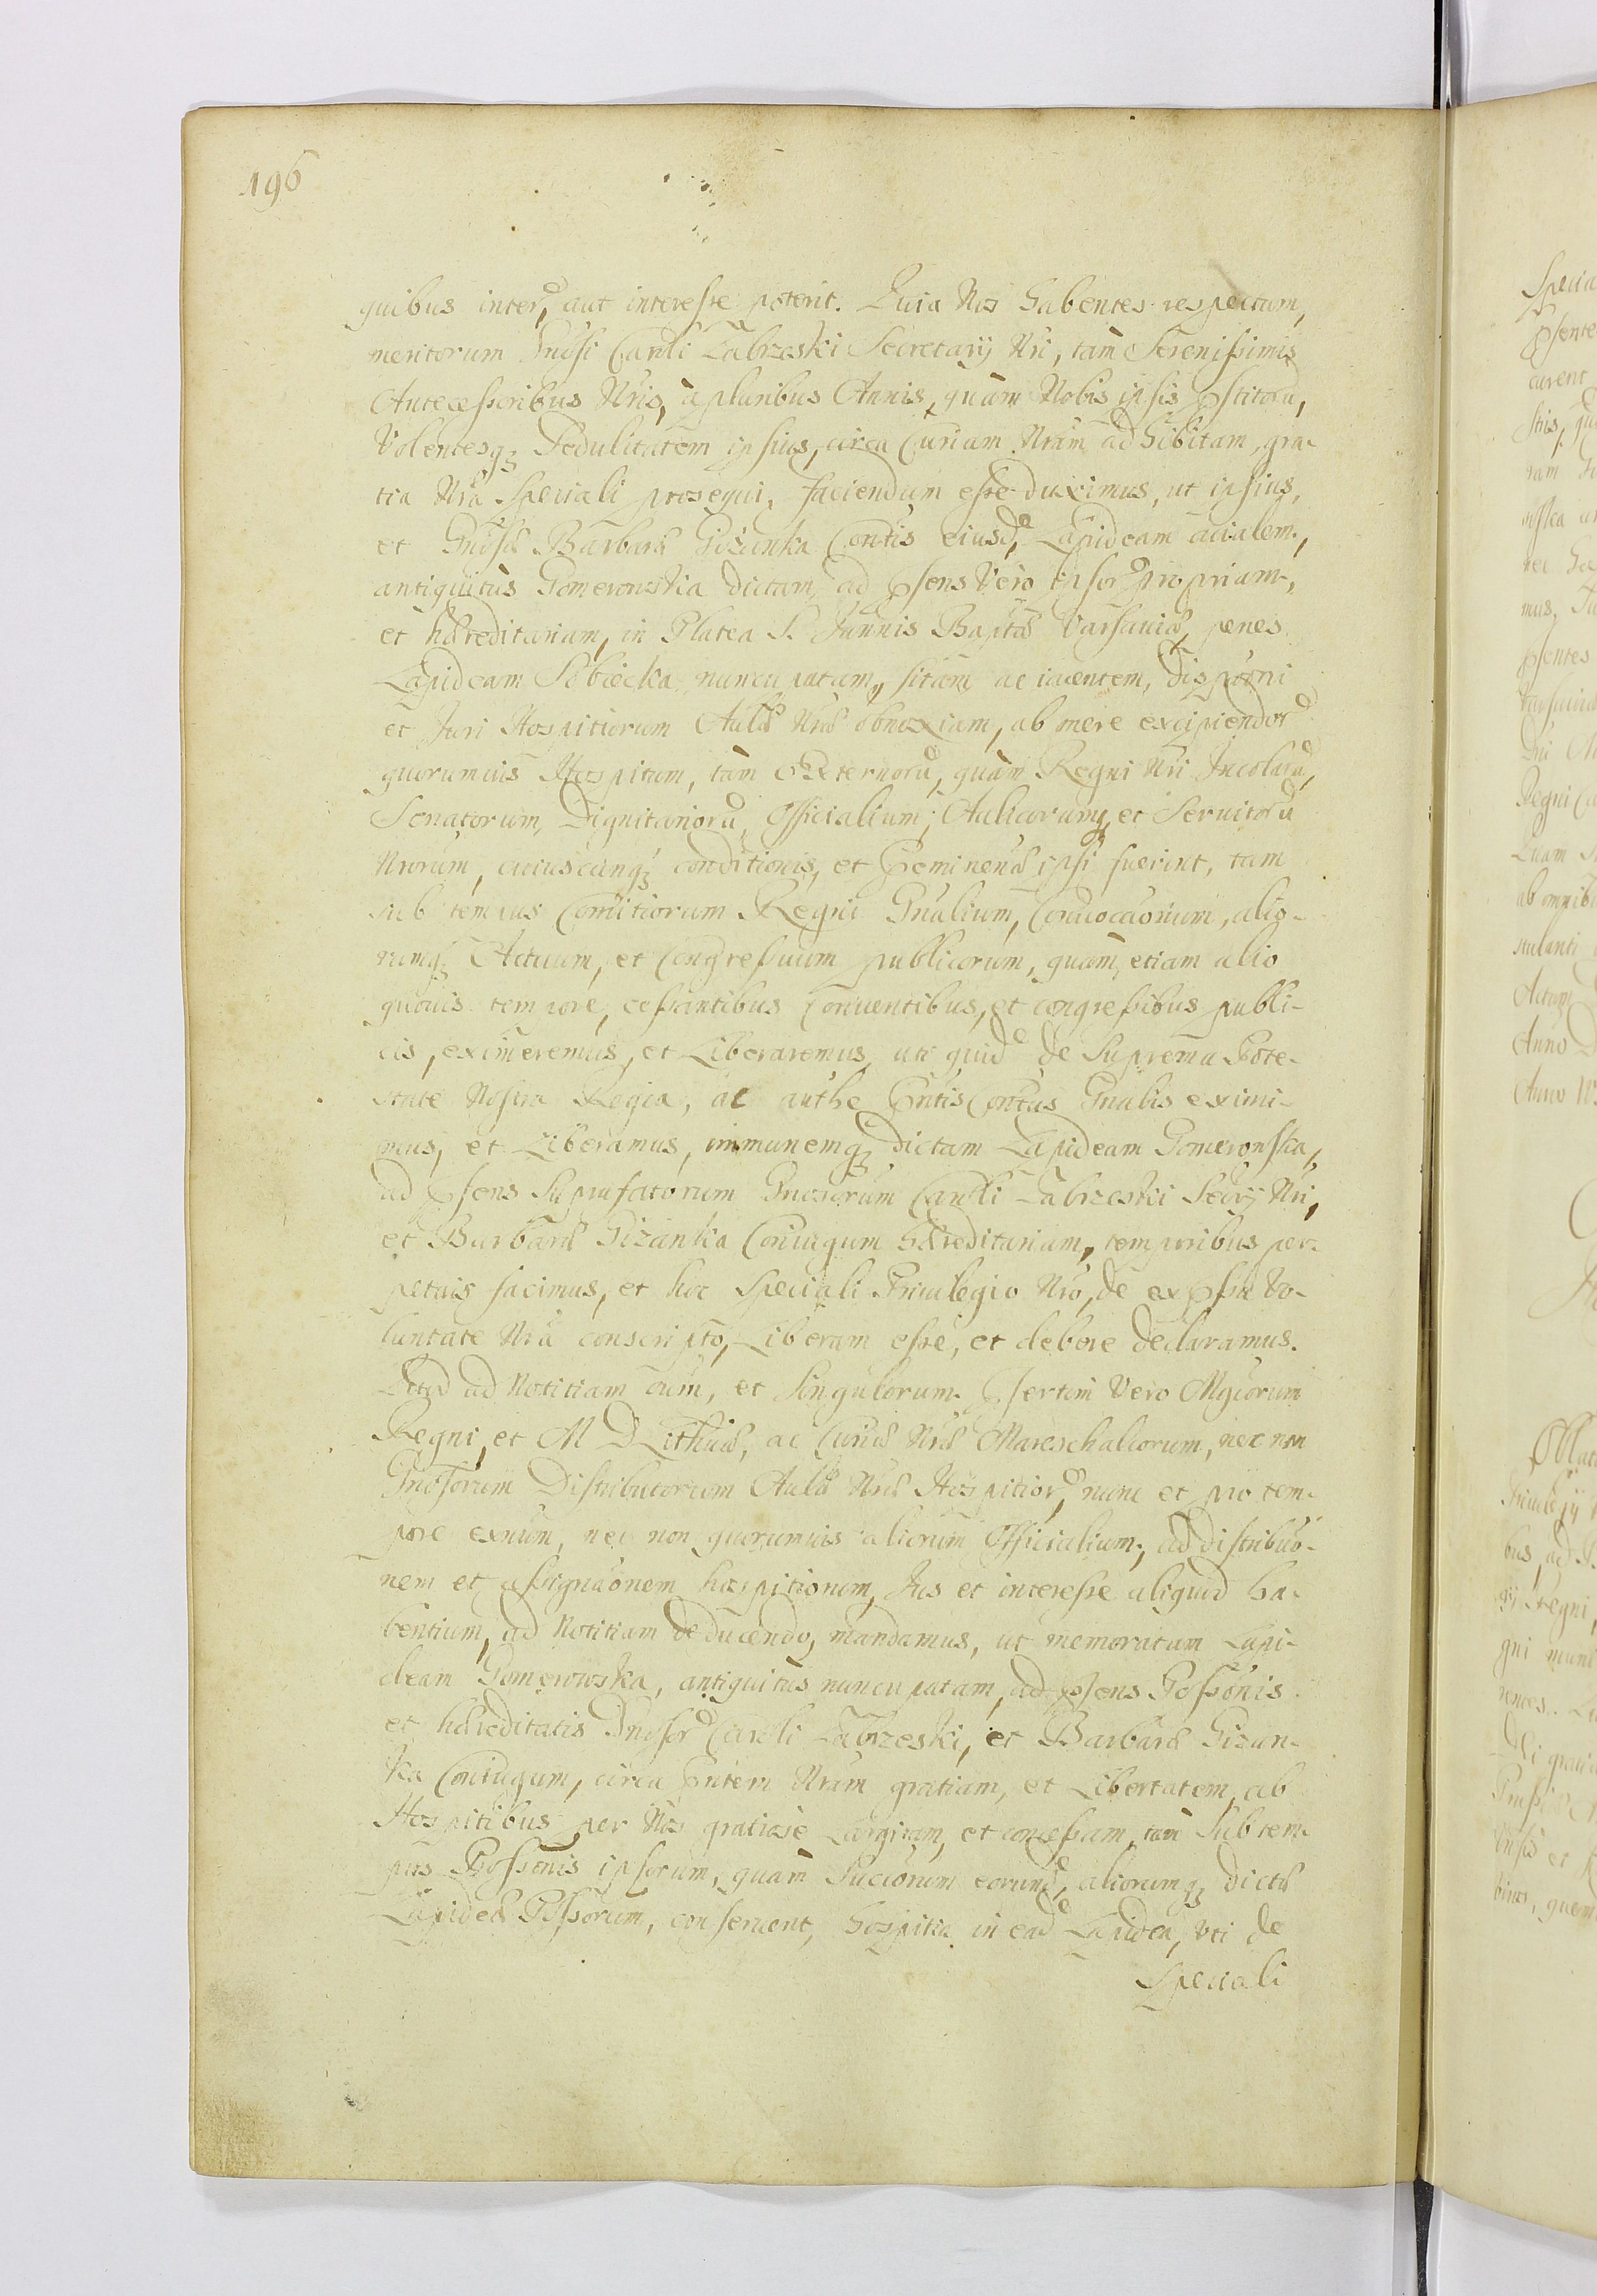 196
quibus inter, aut interesse poterit. Quia Nos habentes respectum,
meritorum Gnosi Caroli Labrzeski Secretarij Nri, tam Serenissimis
Antecessoribus Nris, à pluribus Annis, quàm Nobis ipsis pstitoru,
Volentesq; Sedulitatem ipsius, circa Curiam Nram adhibitam, gra-
tia Nra Speciali prosequi, faciendum esse duximus, ut ipsius,
et Gnosæ Barbaræ Gizanka Contis eiusd, Lapideam acialem,
antiquitùs Gomerowska dictam, ad psens Vero ipsor propriam,
et hæreditariam, in Platea S. Joannis Baptæ Varsaviæ, penes
Lapideam Sobiecka nuncupatam, sitam ac iacentem, dispoōni
et Juri Hospitiorum Aulæ Nræ obnoxiam, ab mere excipiendor
quorumuis Hospitum, tam Externoru, quàm Regni Nri Incolaru,
Senatorum, Dignitarioru, Officialium, Aulicorumq, et Seruitoru
Nrorum, cuiuscunq; conditionis, et Preminenæ ipsi fuerint, tam
sub tempus Comitiorum Regni Gnalium, Conuocaonum, alio-
rumq; Actuum, et Congressuum publicorum, quàm etiam alio
quouis tempore, cessantibus Conuentibus, et congressibus publi-
cis, eximeremus, et Liberaremus, uti quid de Suprema Pote-
state Nostra Regia, ac authe Pntis Contus Gnalis eximi-
mus, et Liberamus, immunemq; dictam Lapideam Gomerowska,
ad psens Suprafatorum Gnosorum Caroli Labrzeski Secrij Nri,
et Barbaræ Gizanka Coniugum hæreditariam, temporibus per-
petuis facimus, et hoc Speciali Priuilegio Nro, de expssa Vo-
luntate Nra conscripto, Liberam esse, et debere declaramus.
Qtod ad Notitiam oium, et Singulorum. Psertim Vero Mgcorum
Regni, et M D Lithuæ, ac Curiæ Nræ Mareschalcorum, nec non
Gnosorum Distributorum Aulæ Nræ Hospitior, nunc et pro tem-
pore exnum, nec non quorumuis aliorum Officialium, ad distribuo-
nem et assignaonem hospitiorum, Jus et interesse aliquid ha-
bentium, ad Notitiam deducendo, mandamus, ut memoratam Lapi-
deam Gomerowska, antiquitus nuncupatam, ad psens Possonis
et hæreditatis Gnosor Caroli Labrzeski, et Barbaræ Gizan-
ka Coniugum, circa Pntem Nram gratiam, et Libertatem, ab
Hospitibus per Nos gratiosè Largitam, et concessam, tam Sub tem-
pus Possonis ipsorum, quàm Succorum eorund, aliorumq; dictæ
Lapideæ Possorum, conseruent, hospitia in ead Lapidea, Vti de
Speciali